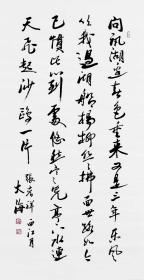 问讯湖边春色重来又是三年东风
吹我过湖船杨柳丝丝拂面世路如今
已惯此心到处悠然寒光亭下水连
天飞起沙鸥一片
张孝祥西江月
大海